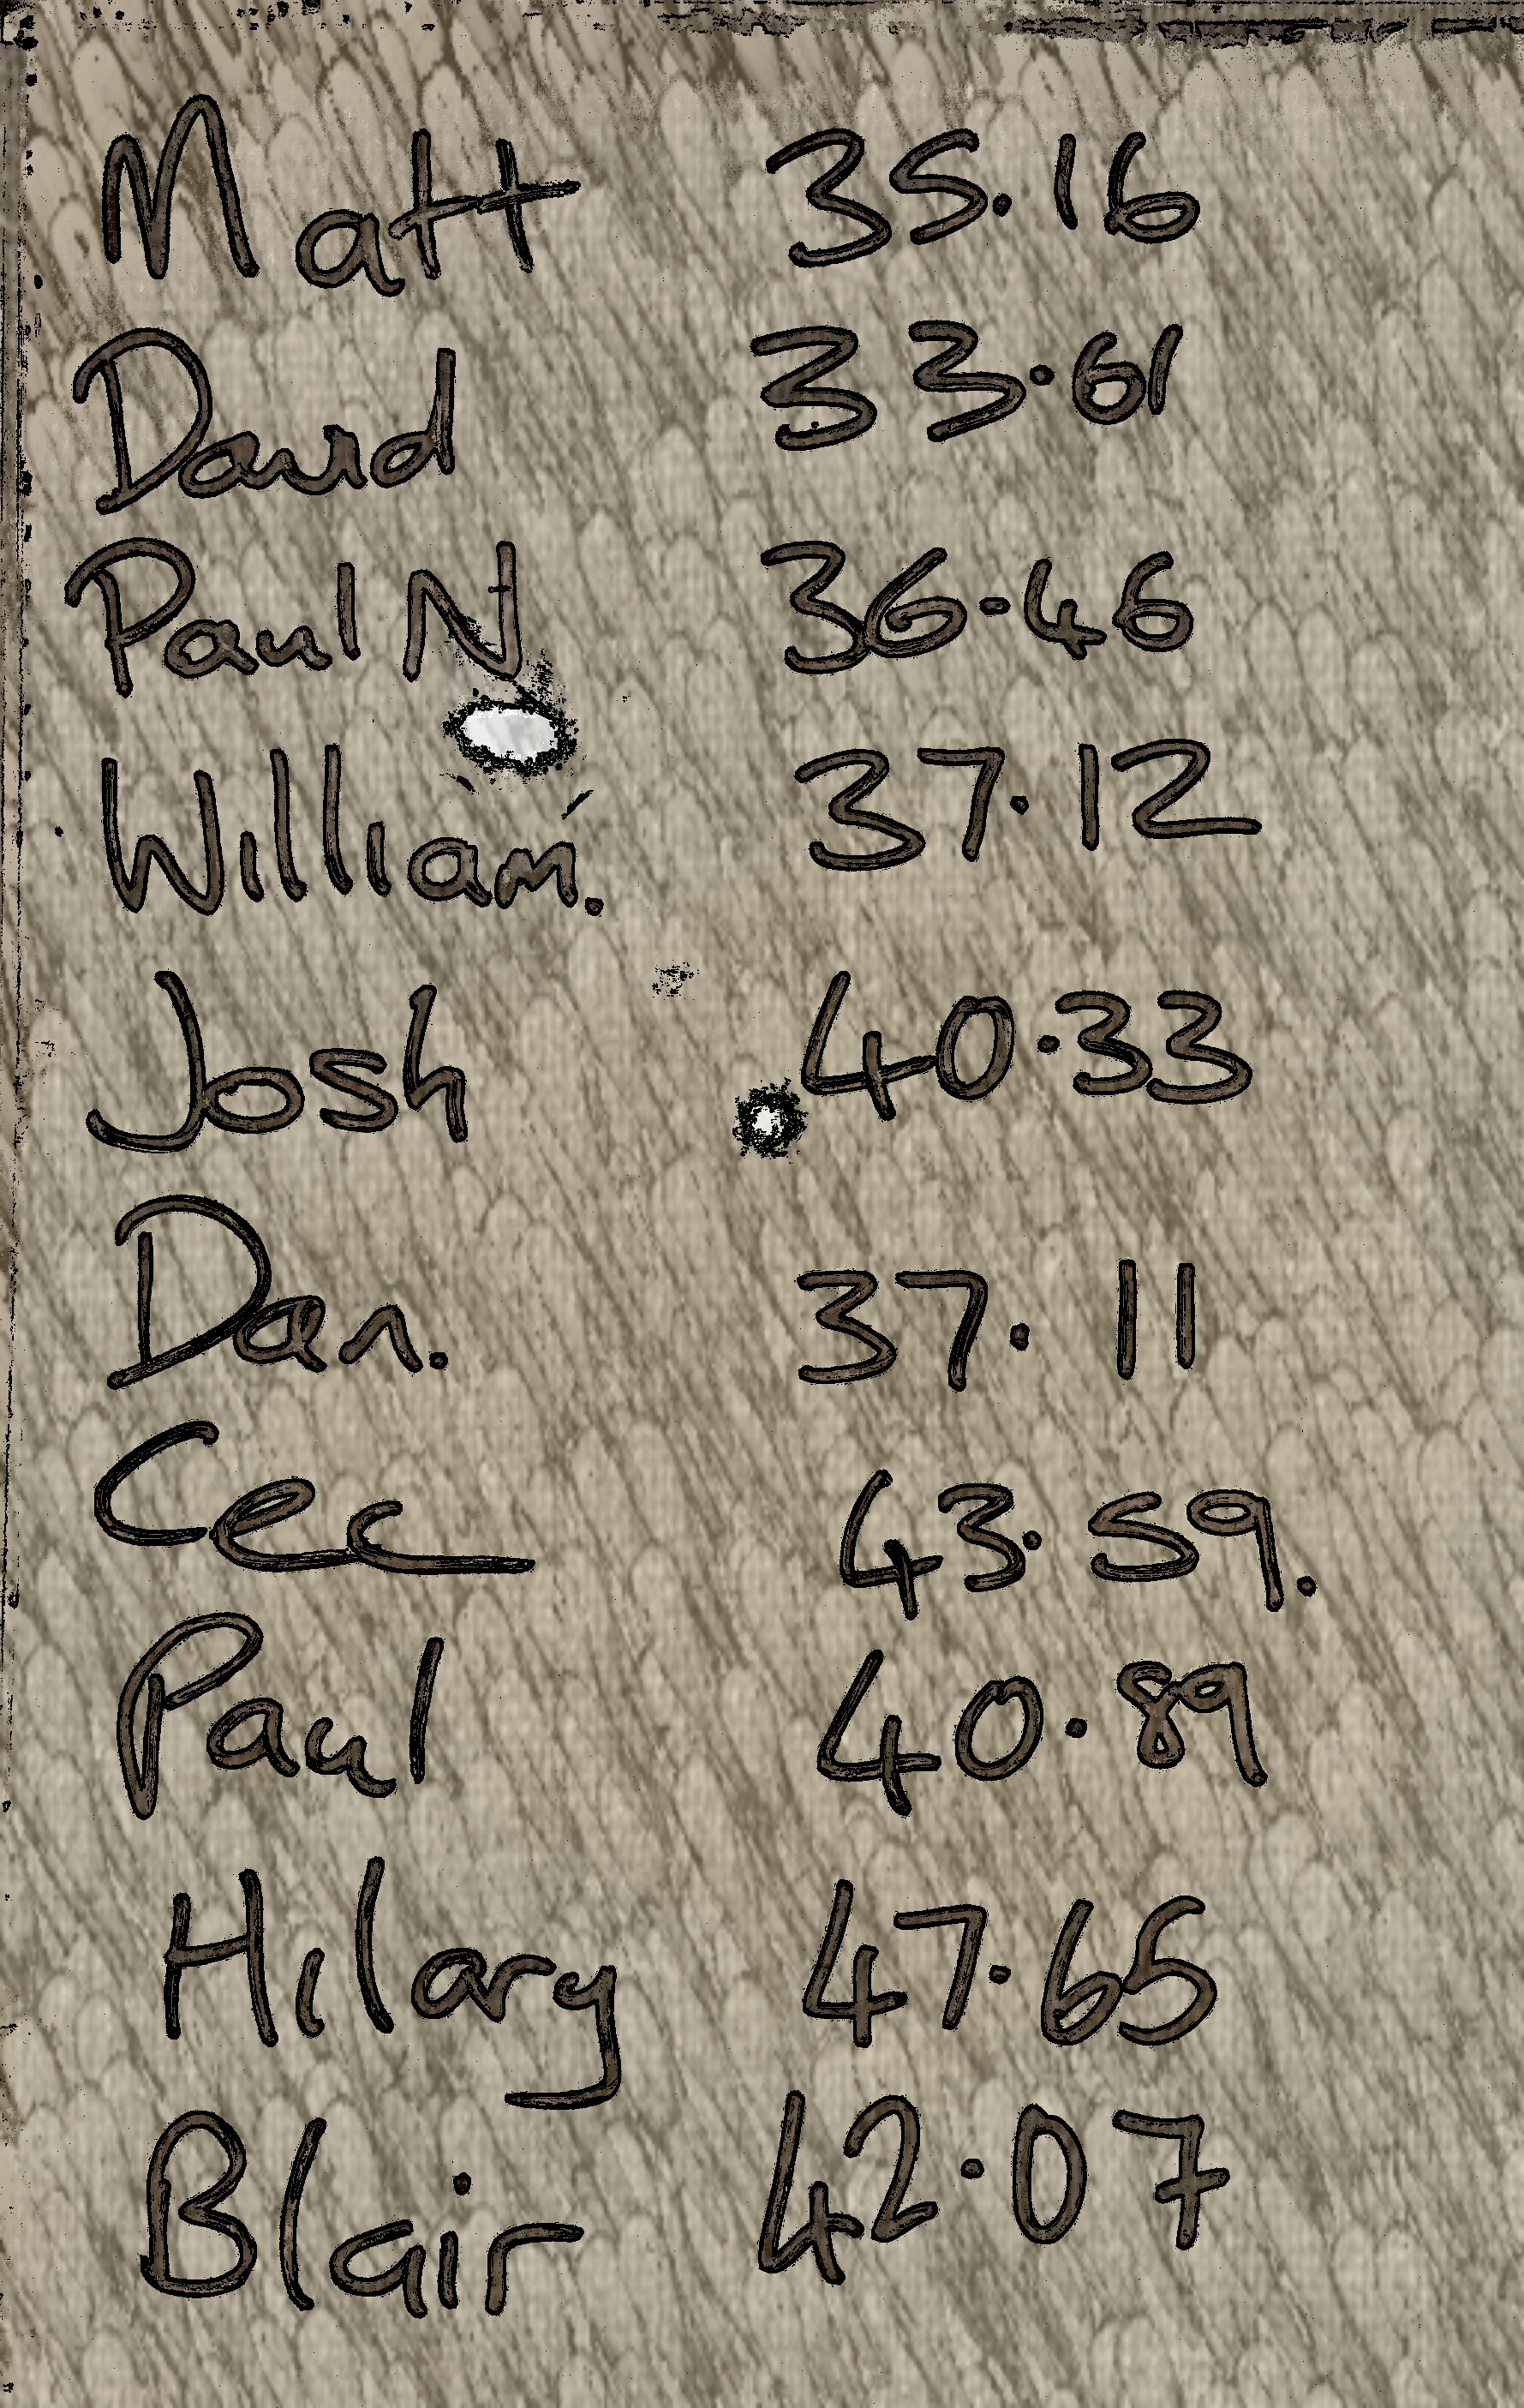 Matt 35.16
David 33.61
Paul N 36.46
William. 37.12
Josh 40.33
Dan. 37.11
Cec 43.59.
Paul 40.89
Hilary 47.65
Blair 42.07